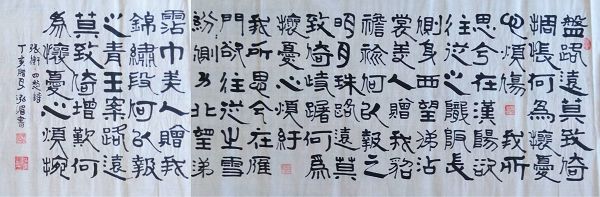 盤路遠莫致倚
惆悵何為懷憂
心煩傷 我所
思兮在漢陽欲
往從之隴阪長
側身西望涕
裳美人贈我貂
襜褕何以報之
明月珠路遠莫
致倚踟躕何為
懷憂心煩紆
我所思兮在雁
門欲往從之雪
紛側身北望涕
霑巾美人贈我
錦繡段何以報
之青玉案路遠
莫致倚增歎何
為懷憂心煩惋
張衡四愁詩
丁亥